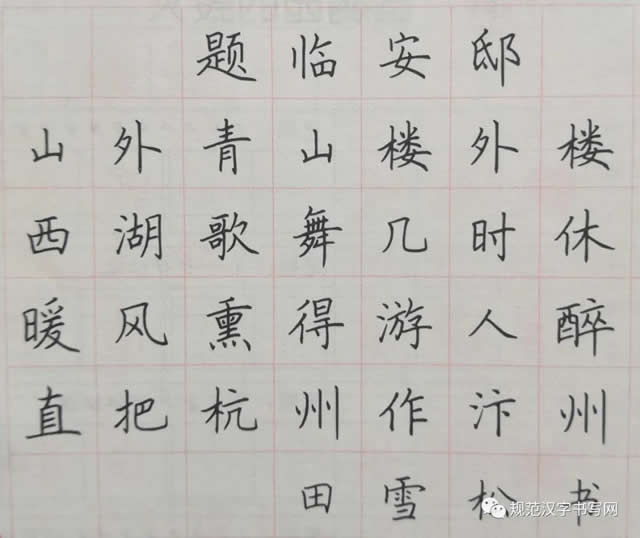 题临安邸
山外青山楼外楼
西湖歌舞几时休
暖风熏得游人醉
直把杭州作汴州
田雪松书
规范汉字书写网